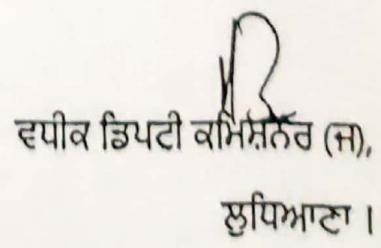 ਵਧੀਕ ਡਿਪਟੀ ਕਮਿਸ਼ਨਰ (ਜ),
ਲੁਧਿਆਣਾ।